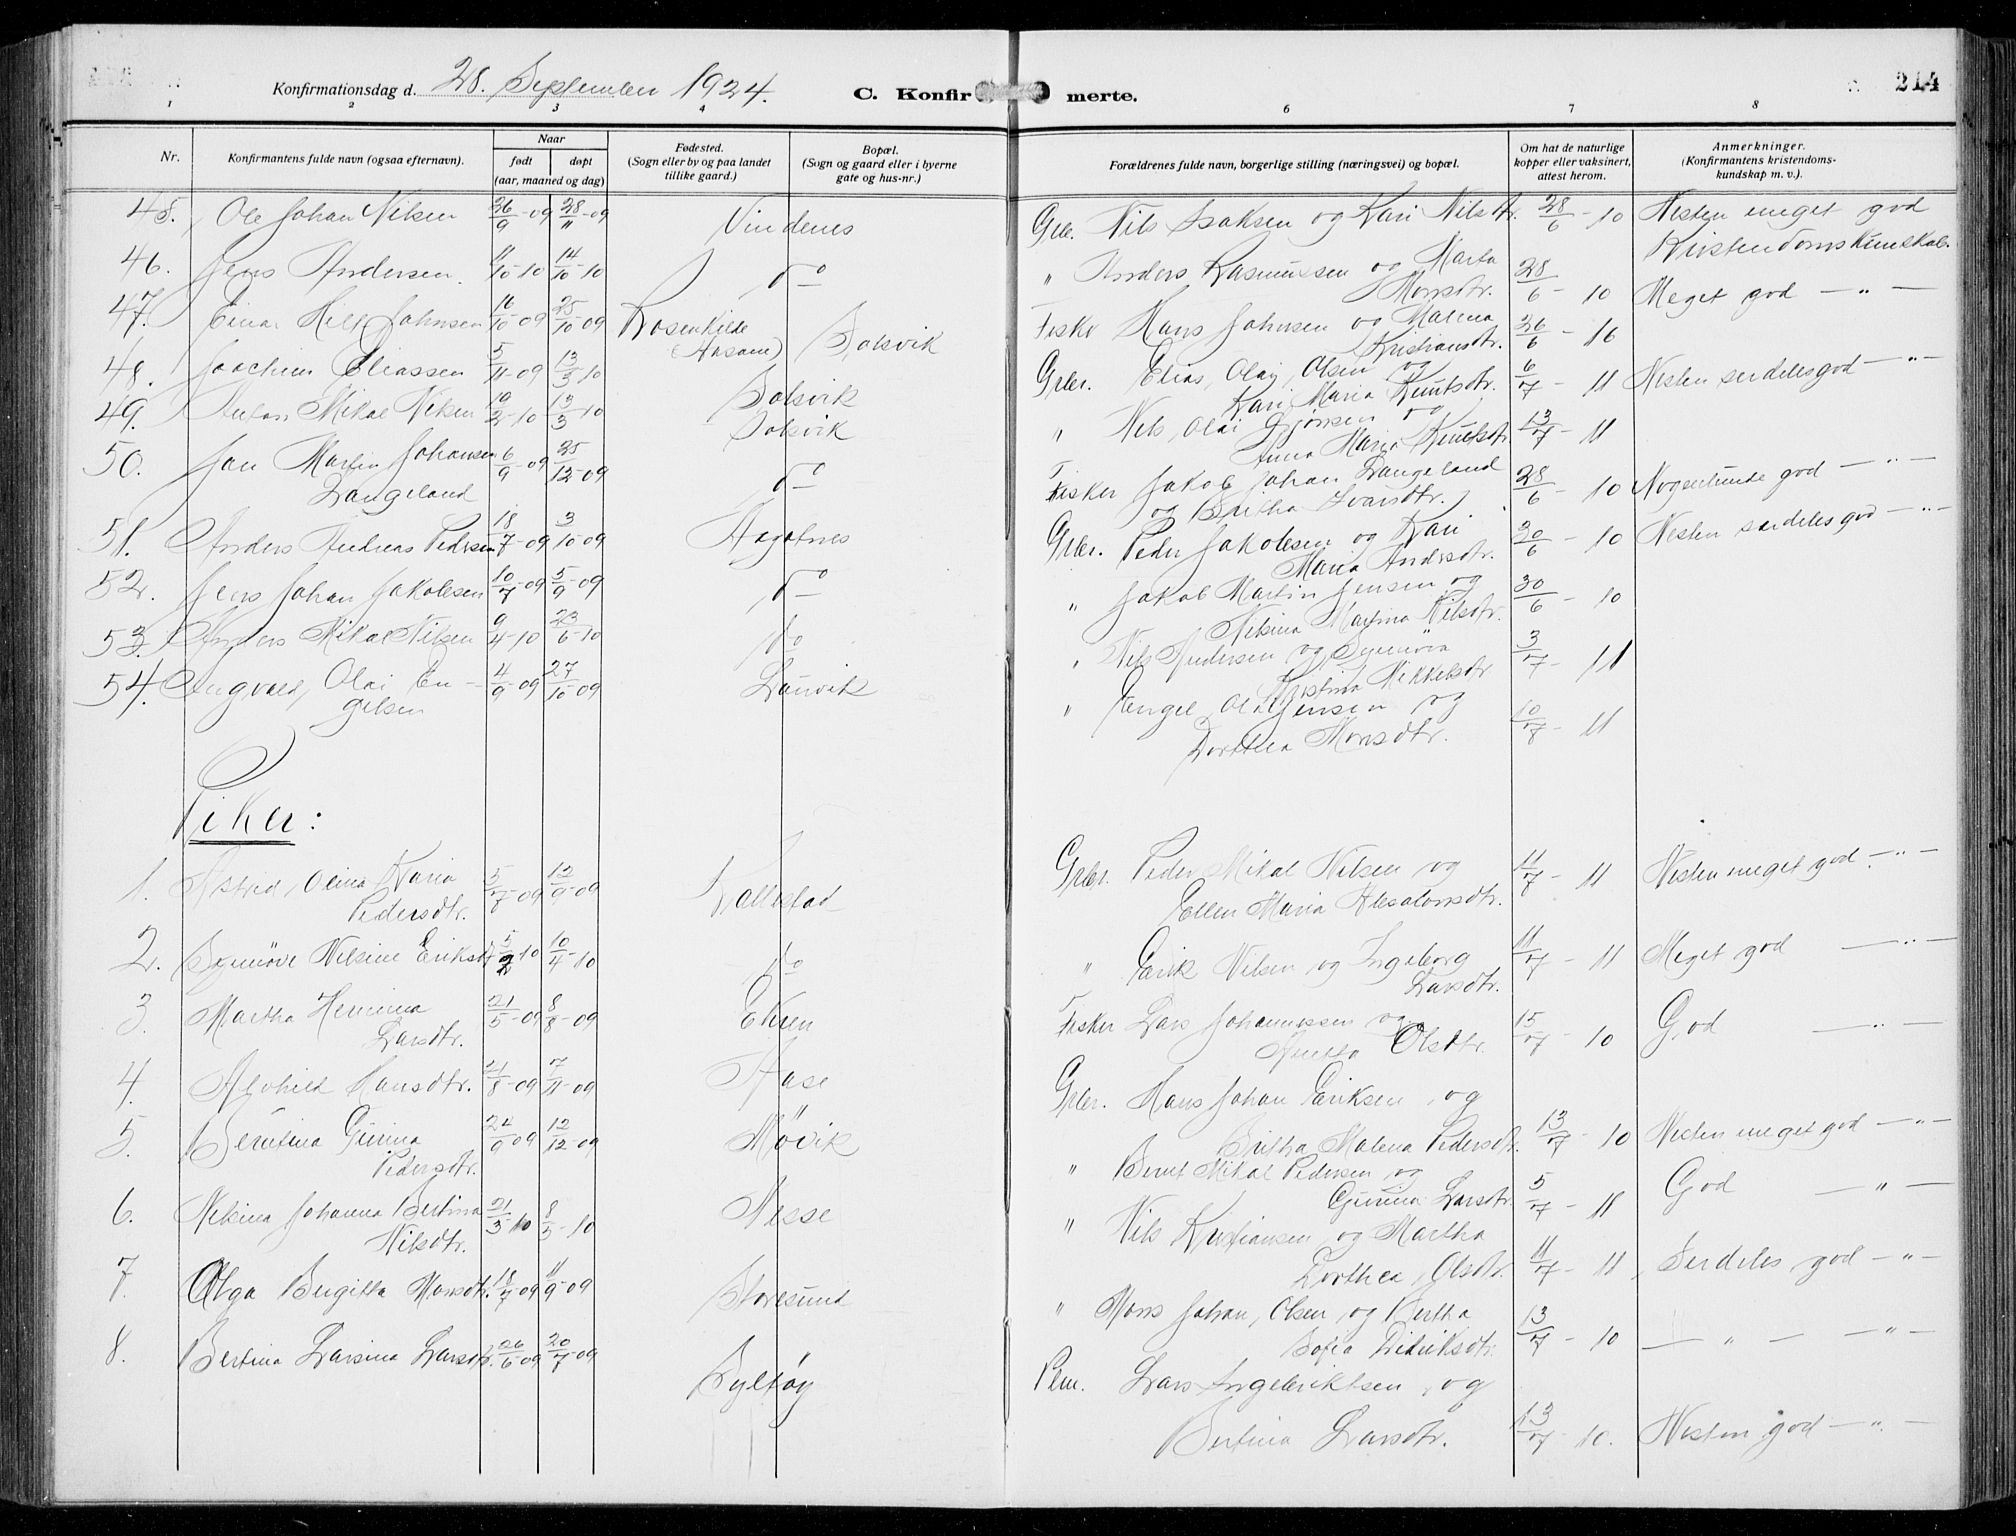 Konfirmationsdag d. 28. September 1924. C. Konfirmerte. 214
1 2 3 4 6 7 8
Nr. Konfirmantens fulde navn (ogsaa efternavn). Naar født døpt (aar, maaned og dag) Fødested. (Sogn eller by og paa landet tillike gaard.) Bopæl. (Sogn og gaard eller i byerne gate og hus-nr.) Forældrenes fulde navn, borgerlige stilling (næringsvei) og bopæl. Om hat de naturlige kopper eller vaksinert, attest herom. Anmerkninger. (Konfirmantens kristendomskundskap m. v.).
45. Ole Johan Nilsen 26/9-09 28/11-09 Vindenes Grbr. Nils Isaksen og Kari Nilsdtr. 28/6-10 Nesten meget god Kristendomskundskab.
46. Jens Andersen. 11/10-10 14/10-10 do " Anders Rasmussen og Marta Monsdtr. 28/6-10 Meget god —"—
47. Einar Johnsen 16/10-09 25/10-09 Rosenkilde Solsvik Fisker Hans Johnsen og Malena Kristiansdtr. 26/6-16
48. Joachim Eliassen 5/11-09 13/3-10 Solsvik Grbr. Elias Olai Olsen og Kari Maria Knutsdtr. 6/7-11 Nesten serdeles god —"—
49. Anton Mikal Nilsen 10/2-10 13/3-10 Solsvik " Nils Olai og Anna Maria Knutsdtr. 13/7-11
50. Jan Martin Johansen Langeland 6/9-09 25/12-09 do Fisker Jakob Johan Langeland og Britha Ivarsdtr. 28/6-10 Nogenlunde god —"—
51. Anders Andreas Pedersen 18/7-09 3/10-09 Aagotnes Grbr. Peder Jakobsen og Kari Maria Andersdtr. 30/6-10 Nesten særdeles god —"—
52. Jens Johan Jakobsen 10/7-09 5/9-09 do " Jakob Martin Jensen og Nilsina Martina Nilsdtr. 30/6-10
53. Anders Mikal Nilsen 9/4-10 23/6-10 do " Nils Andersen og Synnöva Kristina Mikkelsdtr 3/7-11
54. Ingvald, Olai Engelsen 4/9-09 27/10-09 Landvik " Engel Olai Jensen og Dorthea Monsdtr. 10/7-11
Piker:
1. Astrid, Olina Maria Pedersdtr. 5/7-09 12/9-09 Kallestad Grbr. Peder Mikal Nilsen og Ellen Maria Absalonsdtr. 11/7-11 Nesten meget god —"—
2. Synnöve Nilsine Eriksd 5/2-10 10/4-10 do " Erik Nilsen og Ingeborg Larsdtr. 11/7-11 Meget god —"—
3. Martha Larsdtr. 21/5-09 8/8-09 Eksen Fisker Lars Johannessen og Anetta Olsdtr. 15/7-10 God —"—
4. Alvhild Hansdtr. 21/8-09 7/11-09 Aase Grbr. Hans Johan Eriksen, og Britha Malena Pedersdtr. 13/7-10 Nesten meget god —"—
5. Berntina Gurina Pedersdtr. 24/9-09 12/12-09 Mövik " Bernt Mikal Pedersen og Gurina Larsdtr. 5/7-11 God —"—
6. Nilsina Johanna Bertina Nilsdtr. 21/3-10 8/5-10 Nesse " Nils Kristiansen og Martha Dorthea, Olsdtr. 11/7-11 Serdeles god —"—
7. Olga Birgitta Monsdtr. 18/7-09 11/9-09 Storesund " Mons Johan, Olsen og Bertha Sofia Didriksdtr. 13/7-10 — " — —"—
8. Bertina Larsina Larsdtr. 26/6-09 20/7-09 Syltöy Plm. Lars Ingebriktsen, og Bertina Larsdtr. 13/7-10. Nesten god —"—